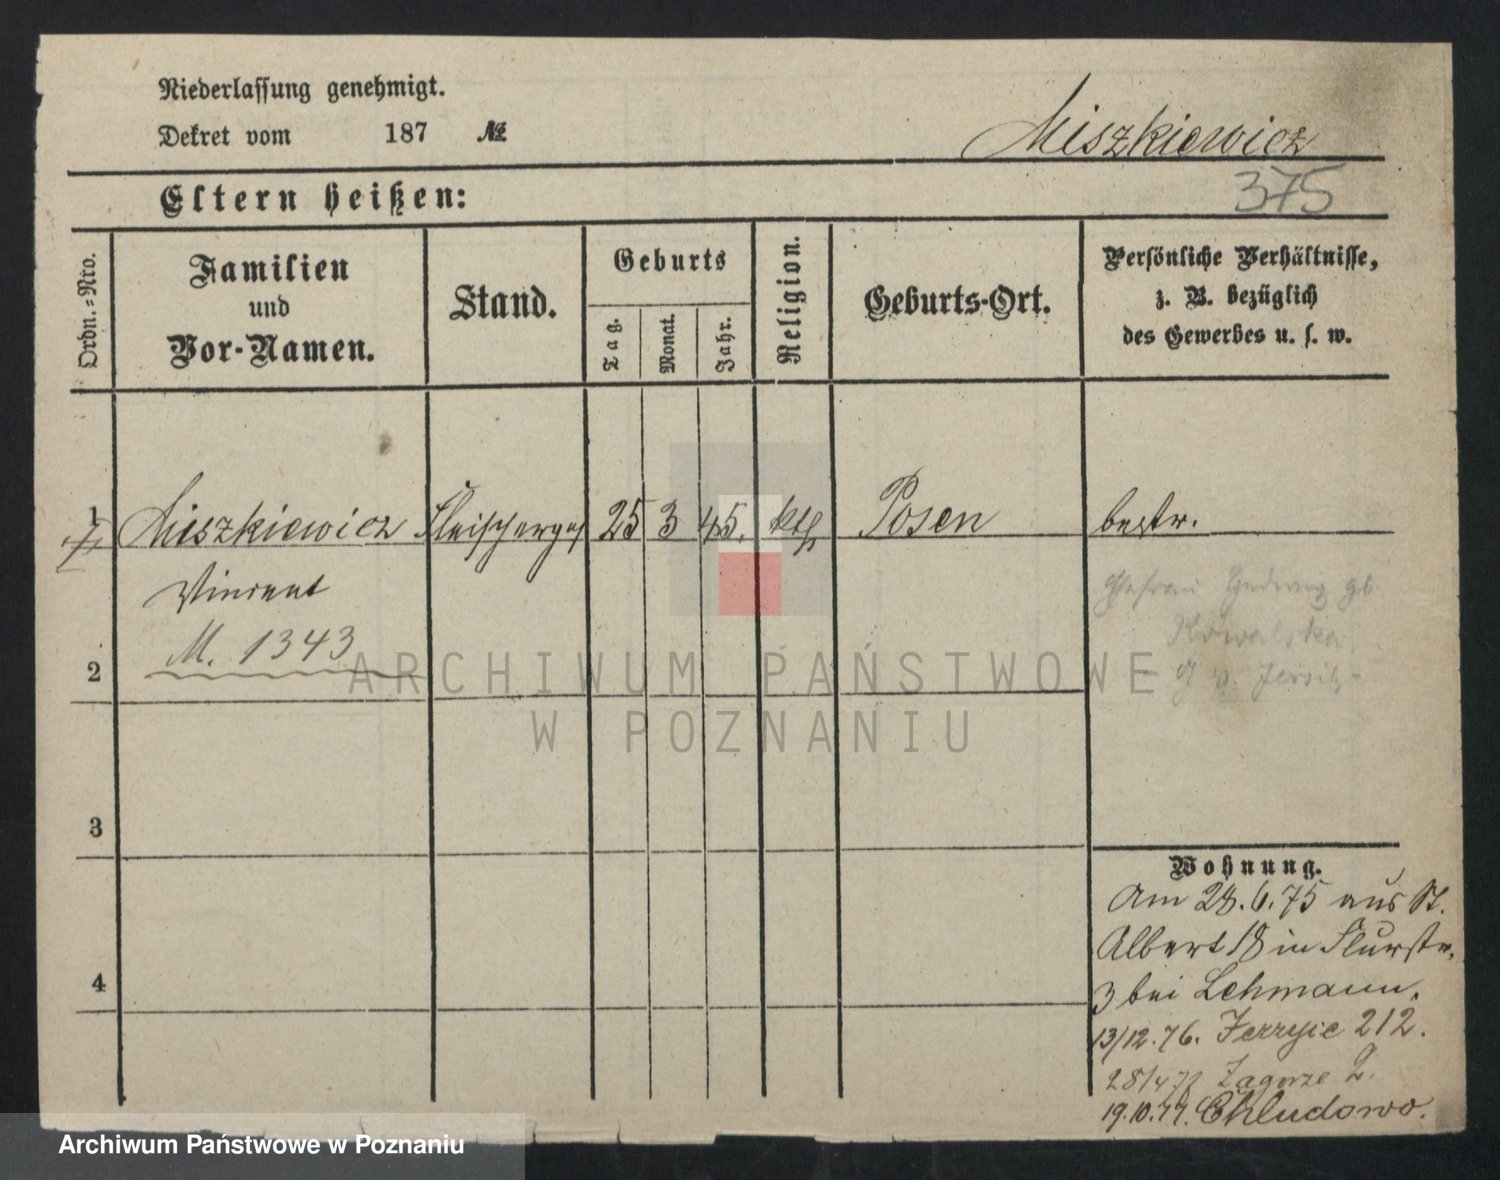 Niederlassung genehmigt.
Dekret vom 187 №
Miszkiewicz
Eltern heißen:
375
Ordn.-Nro.
Familien und Vor-Namen.
Stand.
Geburts
Tag.
Monat.
Jahr.
Religion.
Geburts-Ort.
Persönliche Verhältnisse,
z. B. bezüglich
des Gewerbes u. s. w.
1 Miszkiewicz Fleischerges 25 3 45. kth Posen bestr.
Vincent
Ehefrau Hedwig gb
M. 1343
Kowalska
2
v. Jersitz
ARCHIWUM PAŃSTWOWE
W POZNANIU
3
Wohnung.
Am 28.6.75 aus St.
Albert 18 in Flurstr.
3 bei Lehmann.
4
13/12.76. Jerzyce 212.
28/4 77 Zagorze 2.
19.10.77. Chludowo.
Archiwum Państwowe w Poznaniu